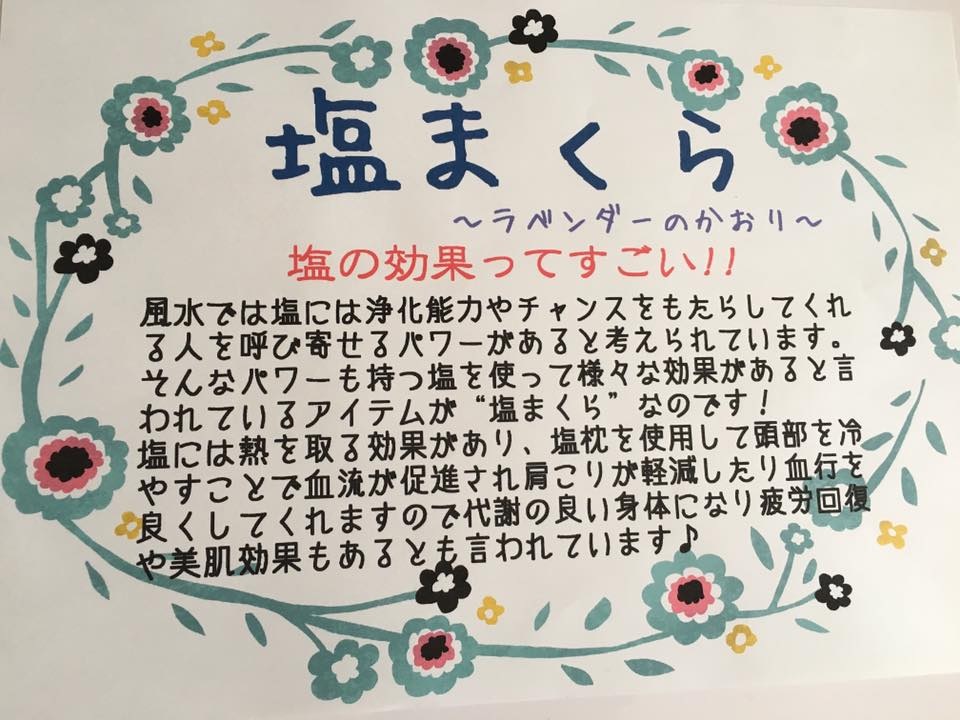 塩まくら
～ラベンダーのかおり～
塩の効果ってすごい!!
風水では塩には浄化能力やチャンスをもたらしてくれ
る人を呼び寄せるパワーがあると考えられています。
そんなパワーも持つ塩を使って様々な効果があると言
われているアイテムが“塩まくら”なのです！
塩には熱を取る効果があり、塩枕を使用して頭部を冷
やすことで血流が促進され肩こりが軽減したり血行を
良くしてくれますので代謝の良い身体になり疲労回復
や美肌効果もあるとも言われています♪